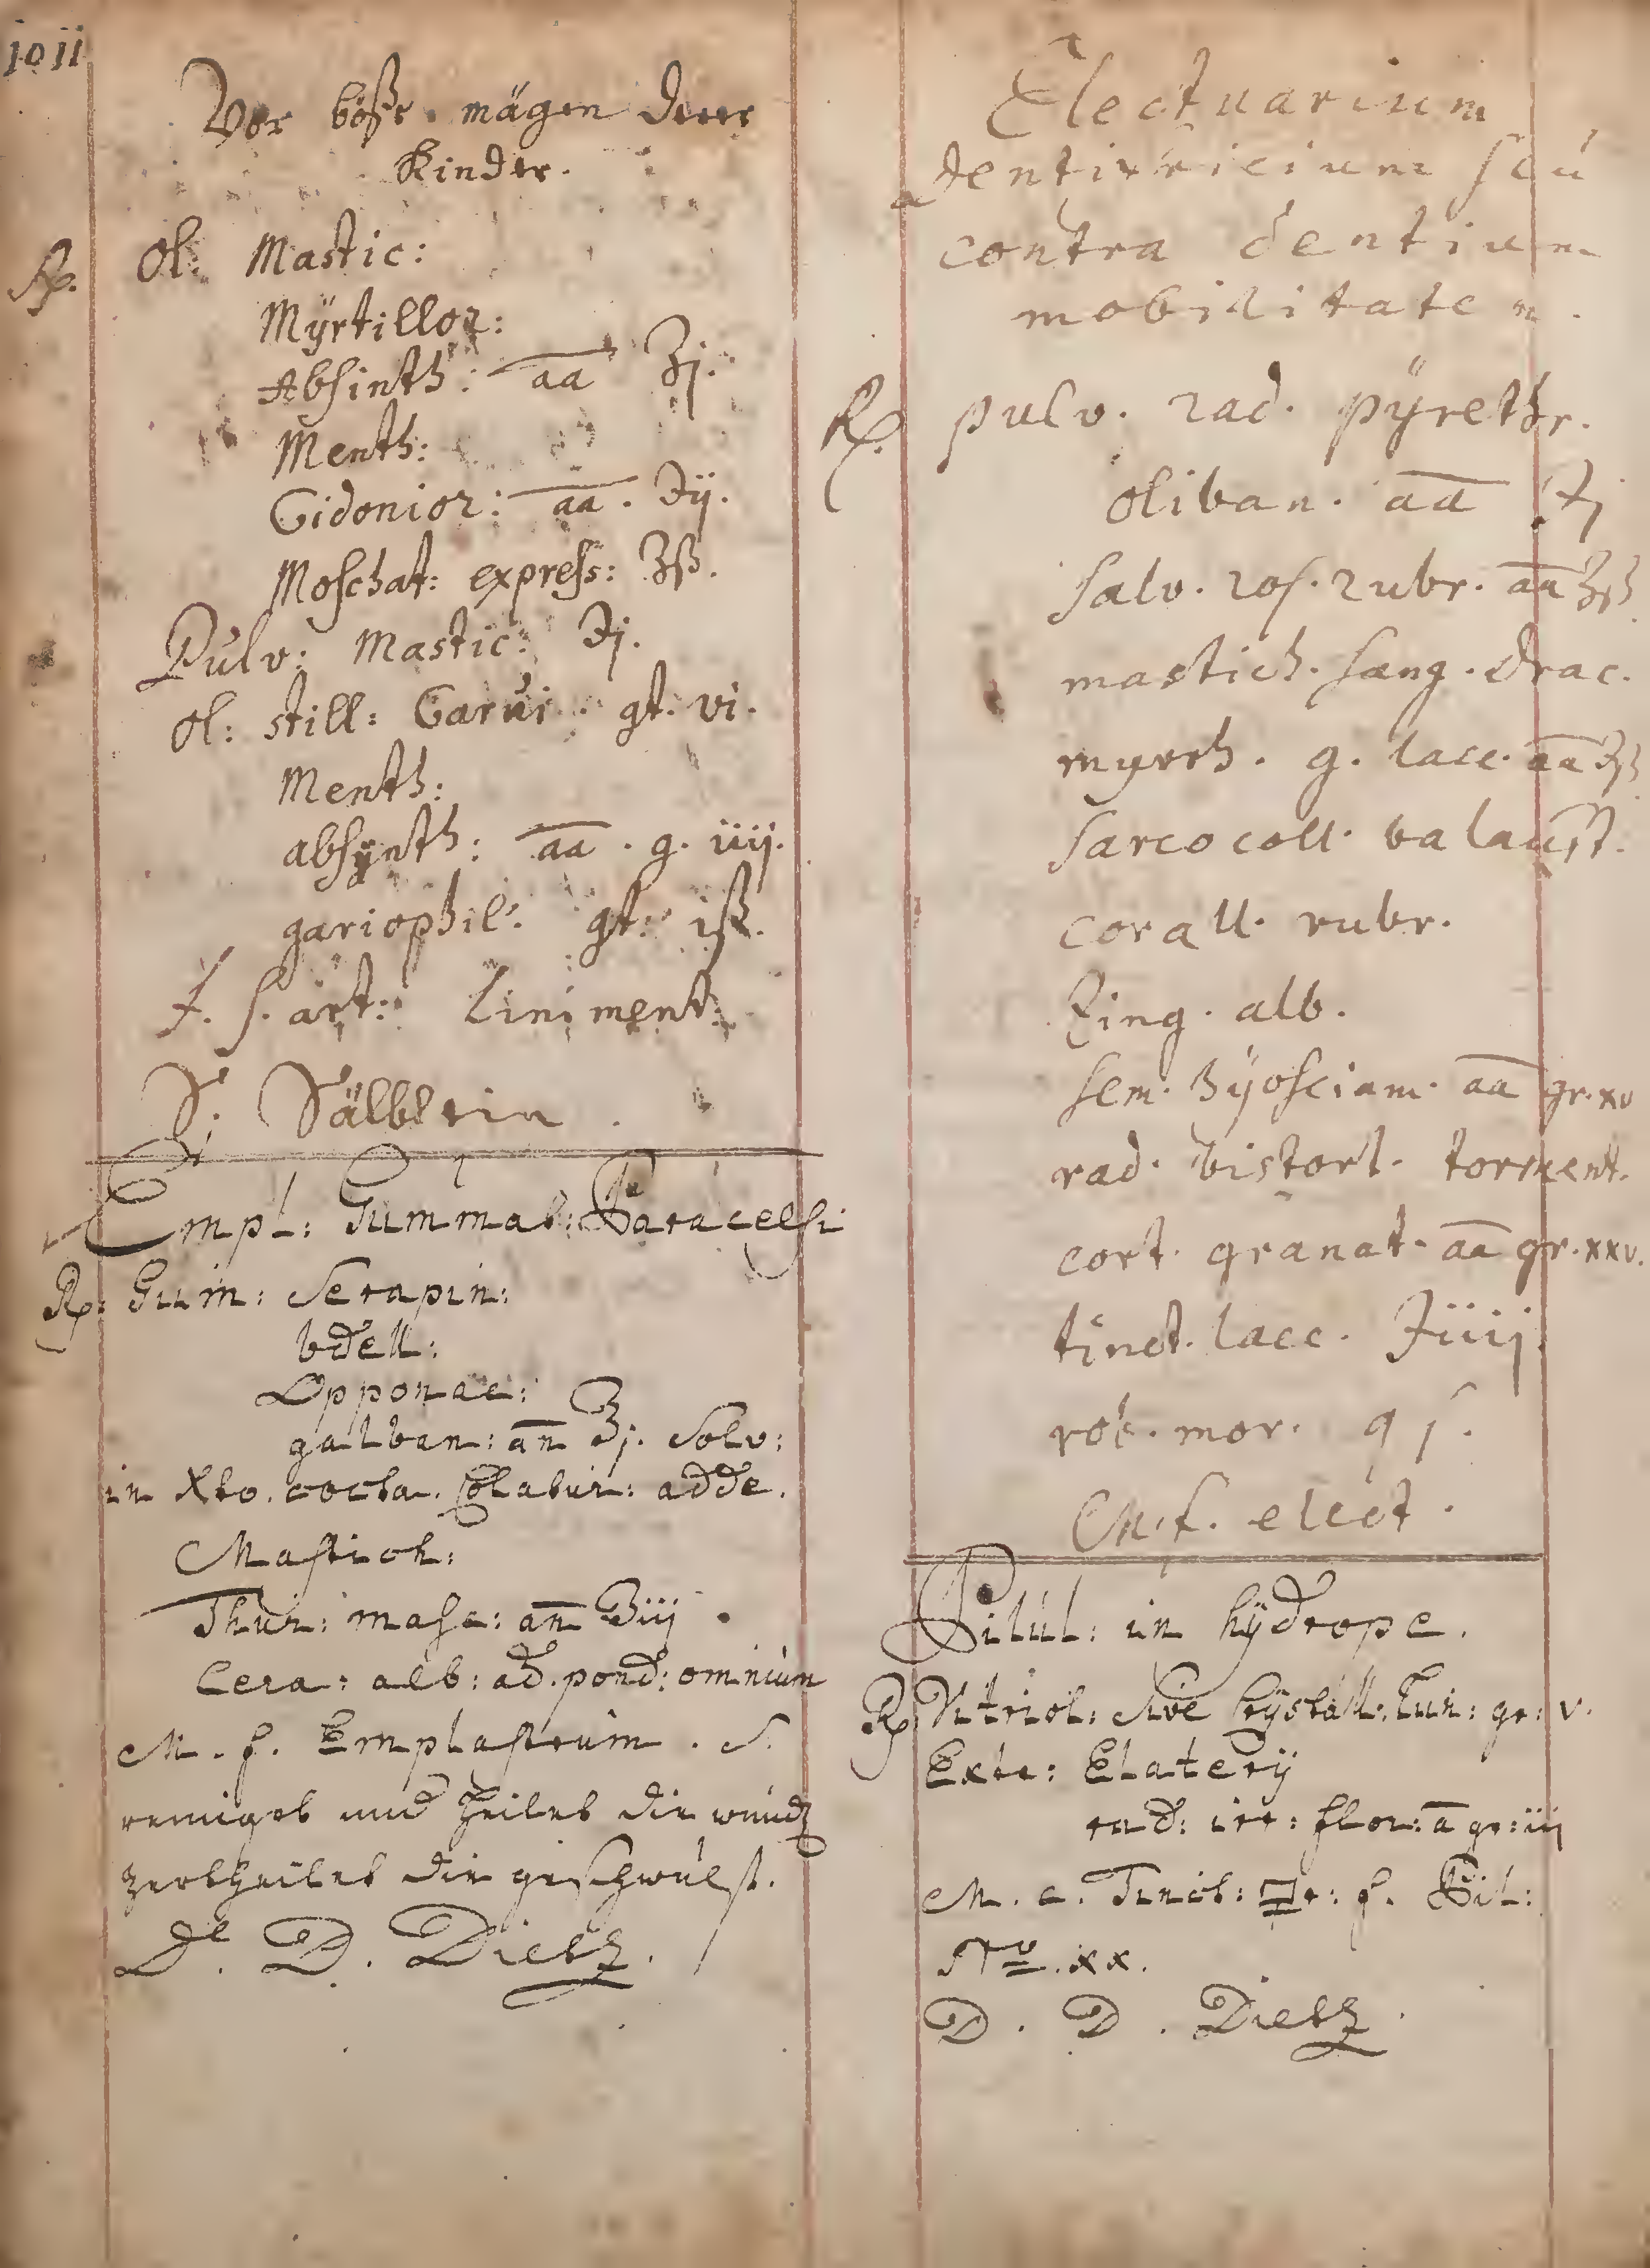 1011
Vor böße mägen derer
Kinder.
℞. Ol. Mastic:
Mÿrtillor:
Absinth: aa ʒj.
Menth:
Cidonior: aa. ℈ij.
Moschat: express: ʒß.
Pulv: Mastic: ℈j.
Ol: still: Carui. gt. vi.
Menth:
absÿnth: aa. g. iiij.
gariophil: gt: iß.
f. s. art: Liniment.
S. Sälblein.
Empl: Gummat: Paracelsi
℞: Gum̄: Serapin:
bdell:
Opponac:
galban: an ℥j. Solv:
in Xto. cocta. Colatur: adde.
Mastich:
Thur: masc: an ʒiij.
Cera: alb: ad. pond: omnium
M. f. Emplastrum. S.
reiniget und heilet die wund
zertheilet die geschwulst.
D. D. Dietz.
Electuarium
dentifricium seu
contra dentium
mobilitatem.
℞. pulv. rad. pÿrethr.
oliban. aa ℈j
salv. ros. rubr. aa ʒß
mastich. sang. drac.
myrrh. g. lacc. aa ℈ß
sarcocoll. balaust.
corall. rubr.
Zing. alb.
sem. hÿosciam. aa gr. xv
rad. bistort. torment.
cort. granat. aa gr. xxv.
tinct. lacc. ℈iiij.
rob. mor. q s.
M. f. elect.
Pilul: in hÿdrope.
℞: Vitriol: sive Crÿstall: Lun: gr: v.
Extr: Elaterÿ
rad: irr: flor: a gr: iij
M. c. Tinct: 🜿r: f. Pil:
No. xx.
D. D. Dietz.